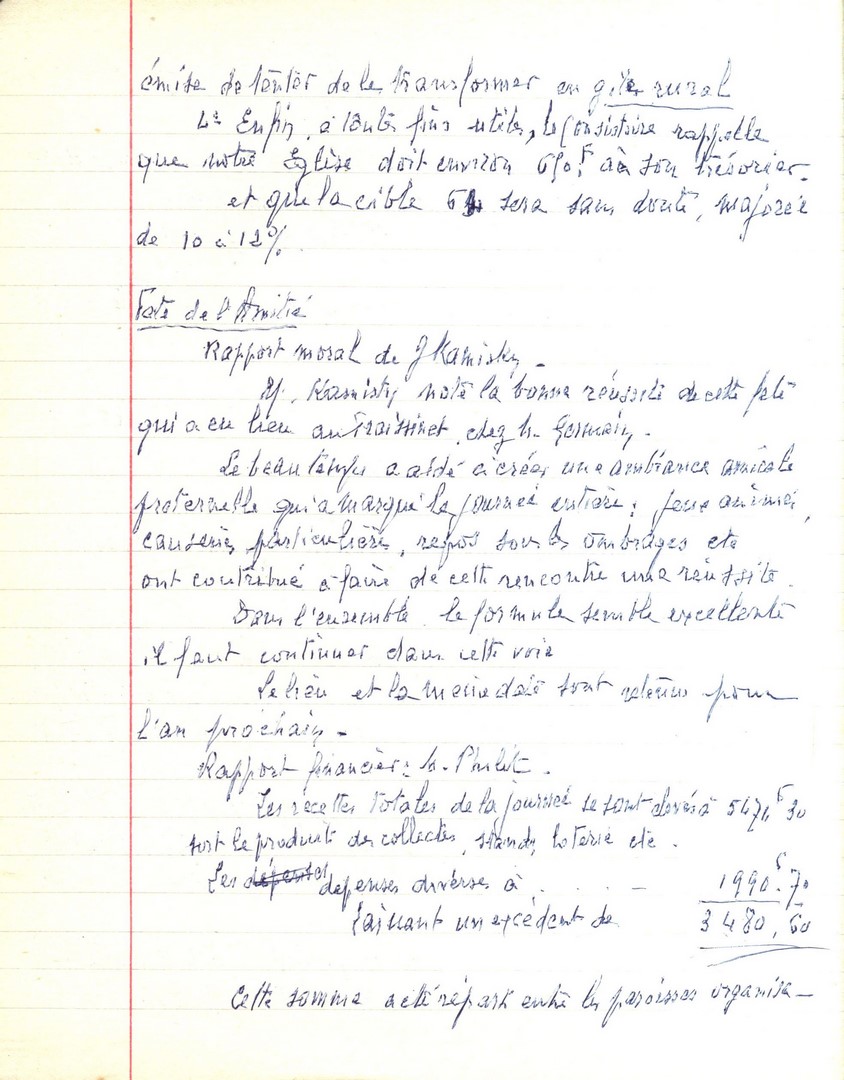 émise de tenter de le transformer en gîte rural
4° Enfin, à toutes fins utiles, le Consistoire rappelle
que notre Eglise doit environ à son trésorier.
et que la cible sera sans doute, majorée
de 10 à 12%.
Fête de l'Amitié
Rapport moral de J Kaminsky.
M. Kaminsky note la bonne réussite de cette fête
qui a eu lieu au Fraissinet chez M. Germain.
Le beau temps a aidé à créer une ambiance amicale
fraternelle qui a marqué la journée entière; jeux animés,
causeries particulières, repos sous les ombrages etc
ont contribué à faire de cette rencontre une réussite.
Dans l'ensemble la formule semble excellente
il faut continuer dans cette voie
Le lieu et la même date sont retenus pour
l'an prochain.
Rapport financier: M.
Les recettes totales de la journée se sont élevés à 5471F30
soit le produit des collectes, stands, loterie etc.
Les dépenses dépenses diverses à . . . 1990F.70
laissant un excédent de 3480,60
Cette somme a été réparti entre les paroisses organisa-